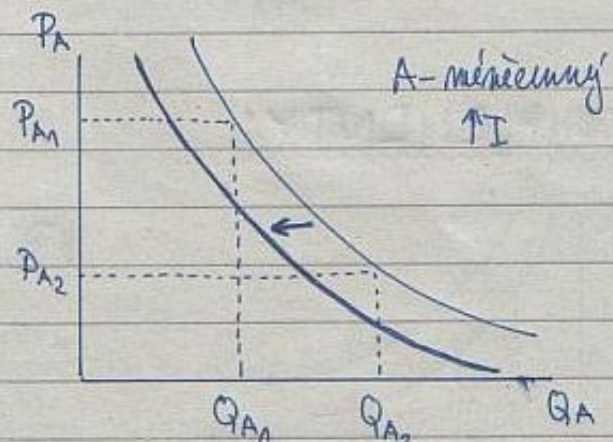 P_A
A - méněcenný
↑I
P_A1
P_A2
Q_A1
Q_A2
Q_A